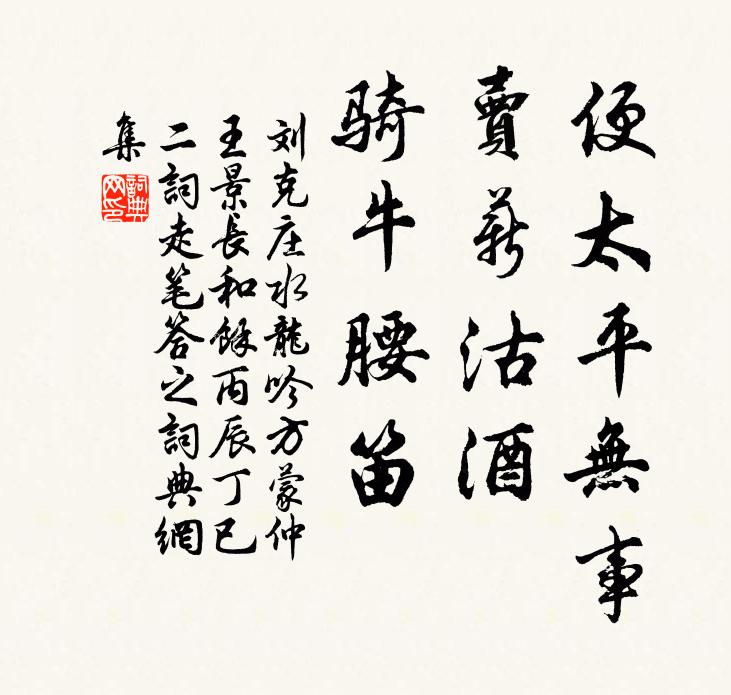 便太平無事
賣薪沽酒
騎牛腰笛
刘克庄水龍吟方蒙仲
王景長和餘丙辰丁巳
二詞走笔答之詞典網
集
詞典
网印